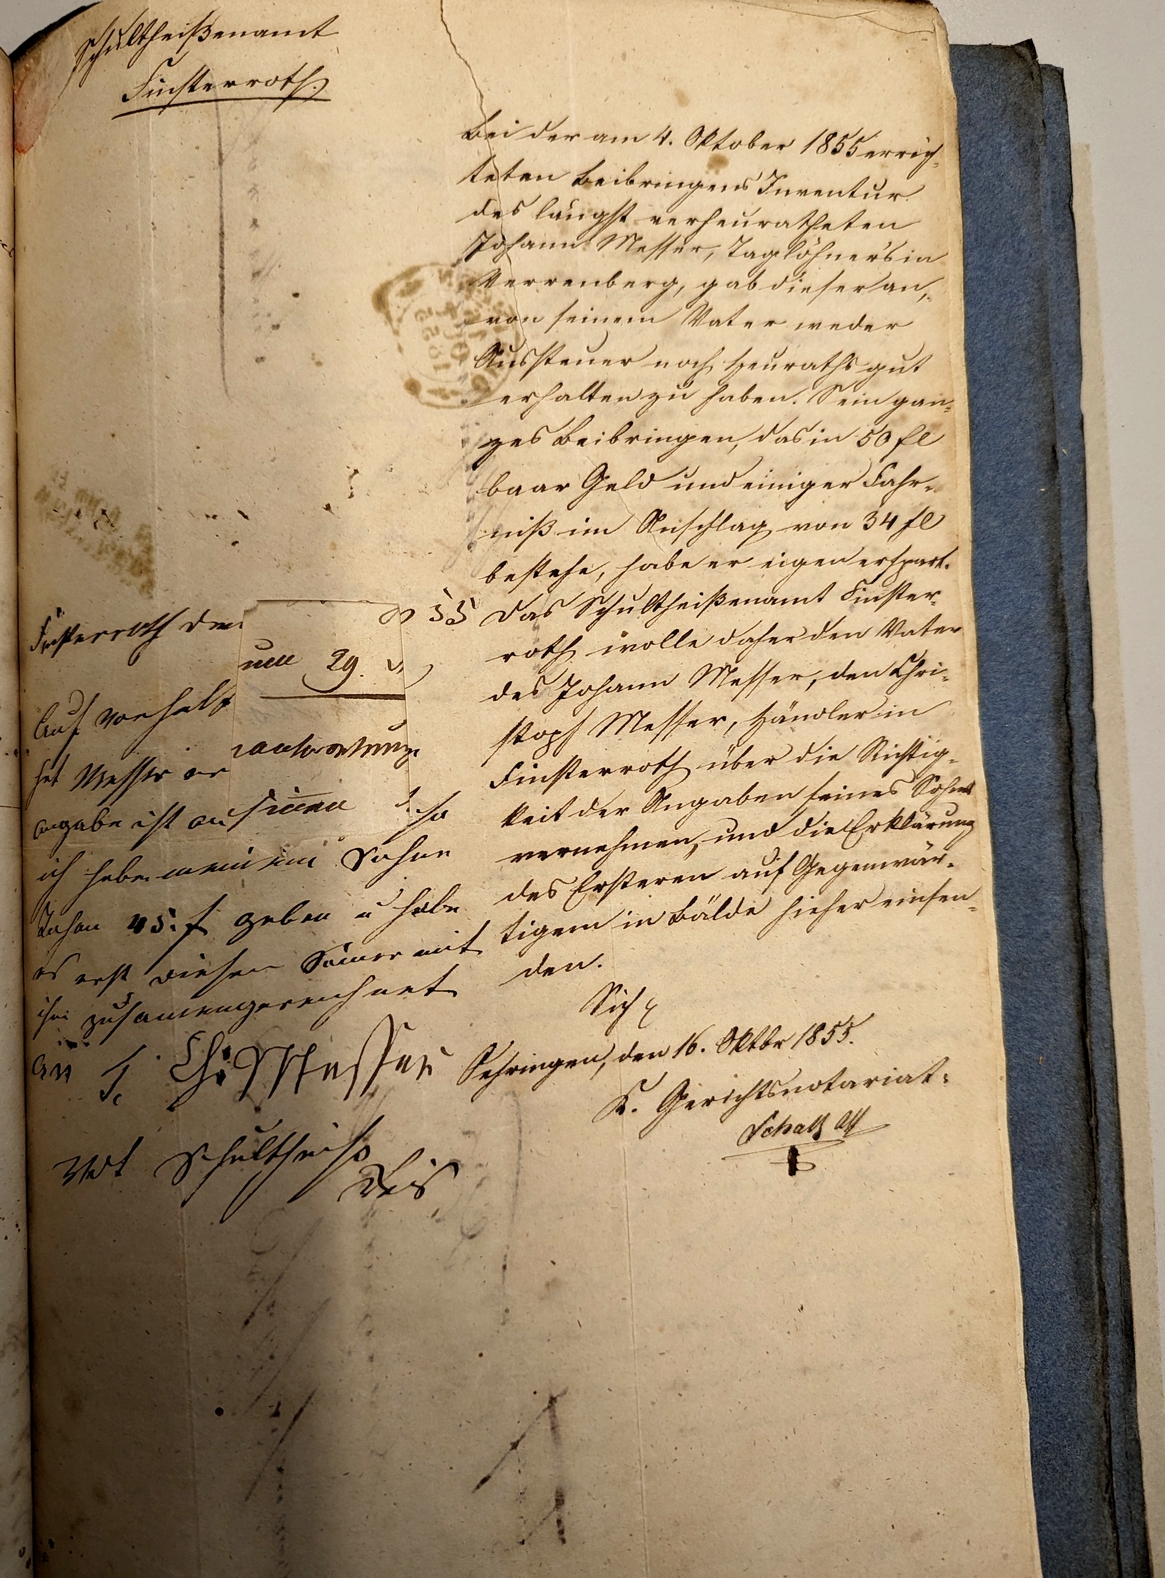 Schultheißenamt
Finsterroth.
Bei der am 4. Oktober 1855 errich-
teten Beibringens Inventur
des längst verheuratheten
Johann Messer, Taglöhners in
Verrenberg, gab dieser an,
von seinem Vater weder
Aussteuer noch Heurathsgut
erhalten zu haben. Sein gan-
zes Beibringen, das in 50 fl
baar Geld und einiger Fahr-
niß im Anschlag von 34 fl
bestehe, habe er eigen erspart.
Das Schultheißenamt Finster-
roth wolle daher den Vater
des Johann Messer, den Chri-
stoph Messer, Händler in
Finsterroth über die Richtig-
keit der Angaben seines Sohns
vernehmen, und die Erklärung
des Ersteren auf Gegenwär-
tigem in Bälde hieher einsen-
den.
Oehringen, den 16. Oktbr 1855.
K. Gerichtsnotariat.
Finsterroth den 29. 55
Auf Vorhalt
hat Messer
angabe ist
ich habe meinem Sohne
Johan 45. f geben u habe
es erst diesen Somer mit
ihm zusamengerechnet
T. Ch: Messer
Vdt Schultheiß